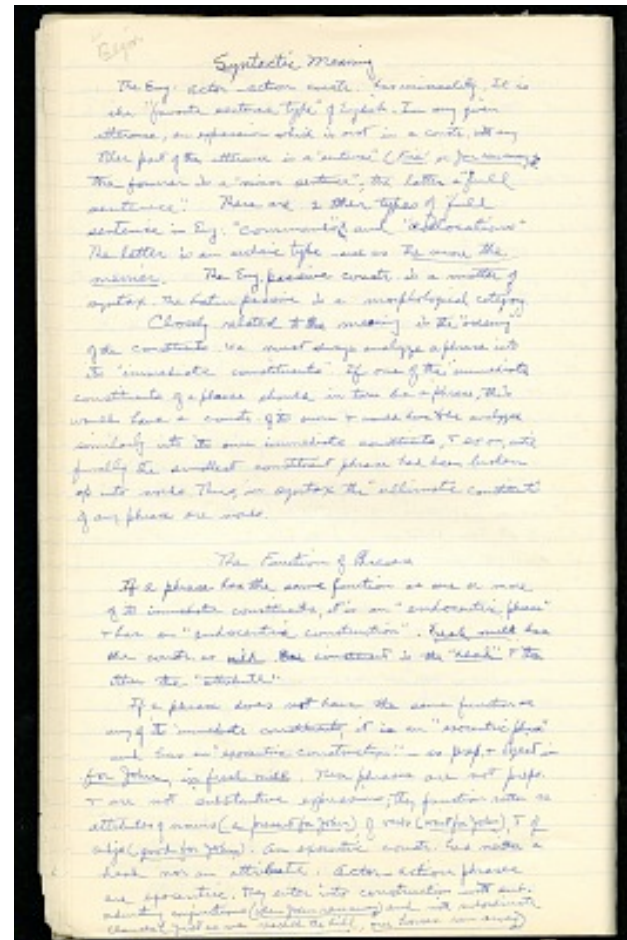 Begin
Syntactic Meaning
The Eng. actor-action constr. has . It is
the "favorite sentence type" of English. In any given
utterance, an expression which is not in a constr. with any
other part of the utterance is a "sentence" (Fire! or John ran away)
The former is a "minor sentence"; the latter a "full
sentence". There are 2 other types of full
sentence in Eng: "commands" and
The latter is an archaic type such as The more the
merrier. The Eng. passive constr. is a matter of
syntax. The Latin passive is a morphological category.
Closely related to the meaning is the
of the constructs. We must always analyze a phrase into
its "immediate constituents". If one of the immediate
constituents of a phrase should in turn be a phrase, this
would have a constr. of its own & would have to be analyzed
similarly into its own immediate constituents, & so on, until
finally the smallest constituent phrase had been broken
up into words. Thus, in syntax the "ultimate constituents"
of any phrase are words.
The Function of Phrases
If a phrase has the same function as one or more
of its immediate constituents, it is an "endocentric phrase"
& has an "endocentric construction". Fresh milk has
the constr. as milk. One constituent is the "head" & the
other the "attribute".
If a phrase does not have the same function as
any of its immediate constituents, it is an "exocentric phrase"
and has an "exocentric construction" – as prep. + object in
for John, in fresh milk. These phrases are not preps.
& are not substantive expressions; they function rather as
attributes of nouns (a present for John) of verbs (wait for John), & of
adjs. (good for John). An exocentric constr. has neither a
head nor an attribute. Actor-action phrases
are exocentric. They enter into construction with sub-
ordinating conjunctions (when John ran away) and with subordinate
clauses (just as we reached the hill, our horses ran away)